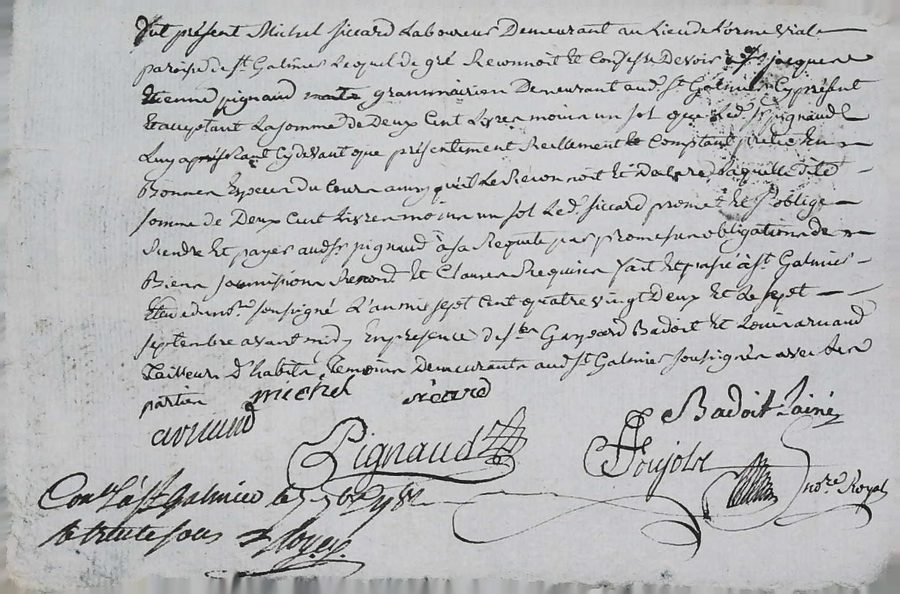 fut présent Michel siccard Laboureur Demeurant au Lieu de L'orme vial
paroisse de st Galmier Lequel de gré Reconnoit et Confesse Devoir a sr jacque
Etienne pignaud grammairien Demeurant aud. st Galmier Cy présent
et acceptant La somme de Deux Cent Livres moins un sol que led. sr pignaud
Luy a présté tant Cy devant que présentement Reellement Comptant en
Bonnes Especes du Cours ainsy qu'il Le Reconnoit Et Laquelle dite
somme de Deux Cent Livres moins un sol Led. siccard promet et s'oblige
Rendre Et payer aud. sr pignaud à sa Requete par promesses obligations de
Biens soumissions Renond. Et Clauses Requises fait et passé à st Galmier
Etude du nore soussigné L'an mil sept Cent quatre vingt Deux Et Le sept
septembre avant midy En présence de srs Gaspard Badoit Et Louis arnaud
Tailleurs D'habits Temoins Demeurants aud. st Galmier soussignés avec Les
parties michel sicard Badoit L'ainé
arnaud
Pignaud
Poujol nore Royal
Conlé à st Galmier le 7 7bre 1782
R trente sous